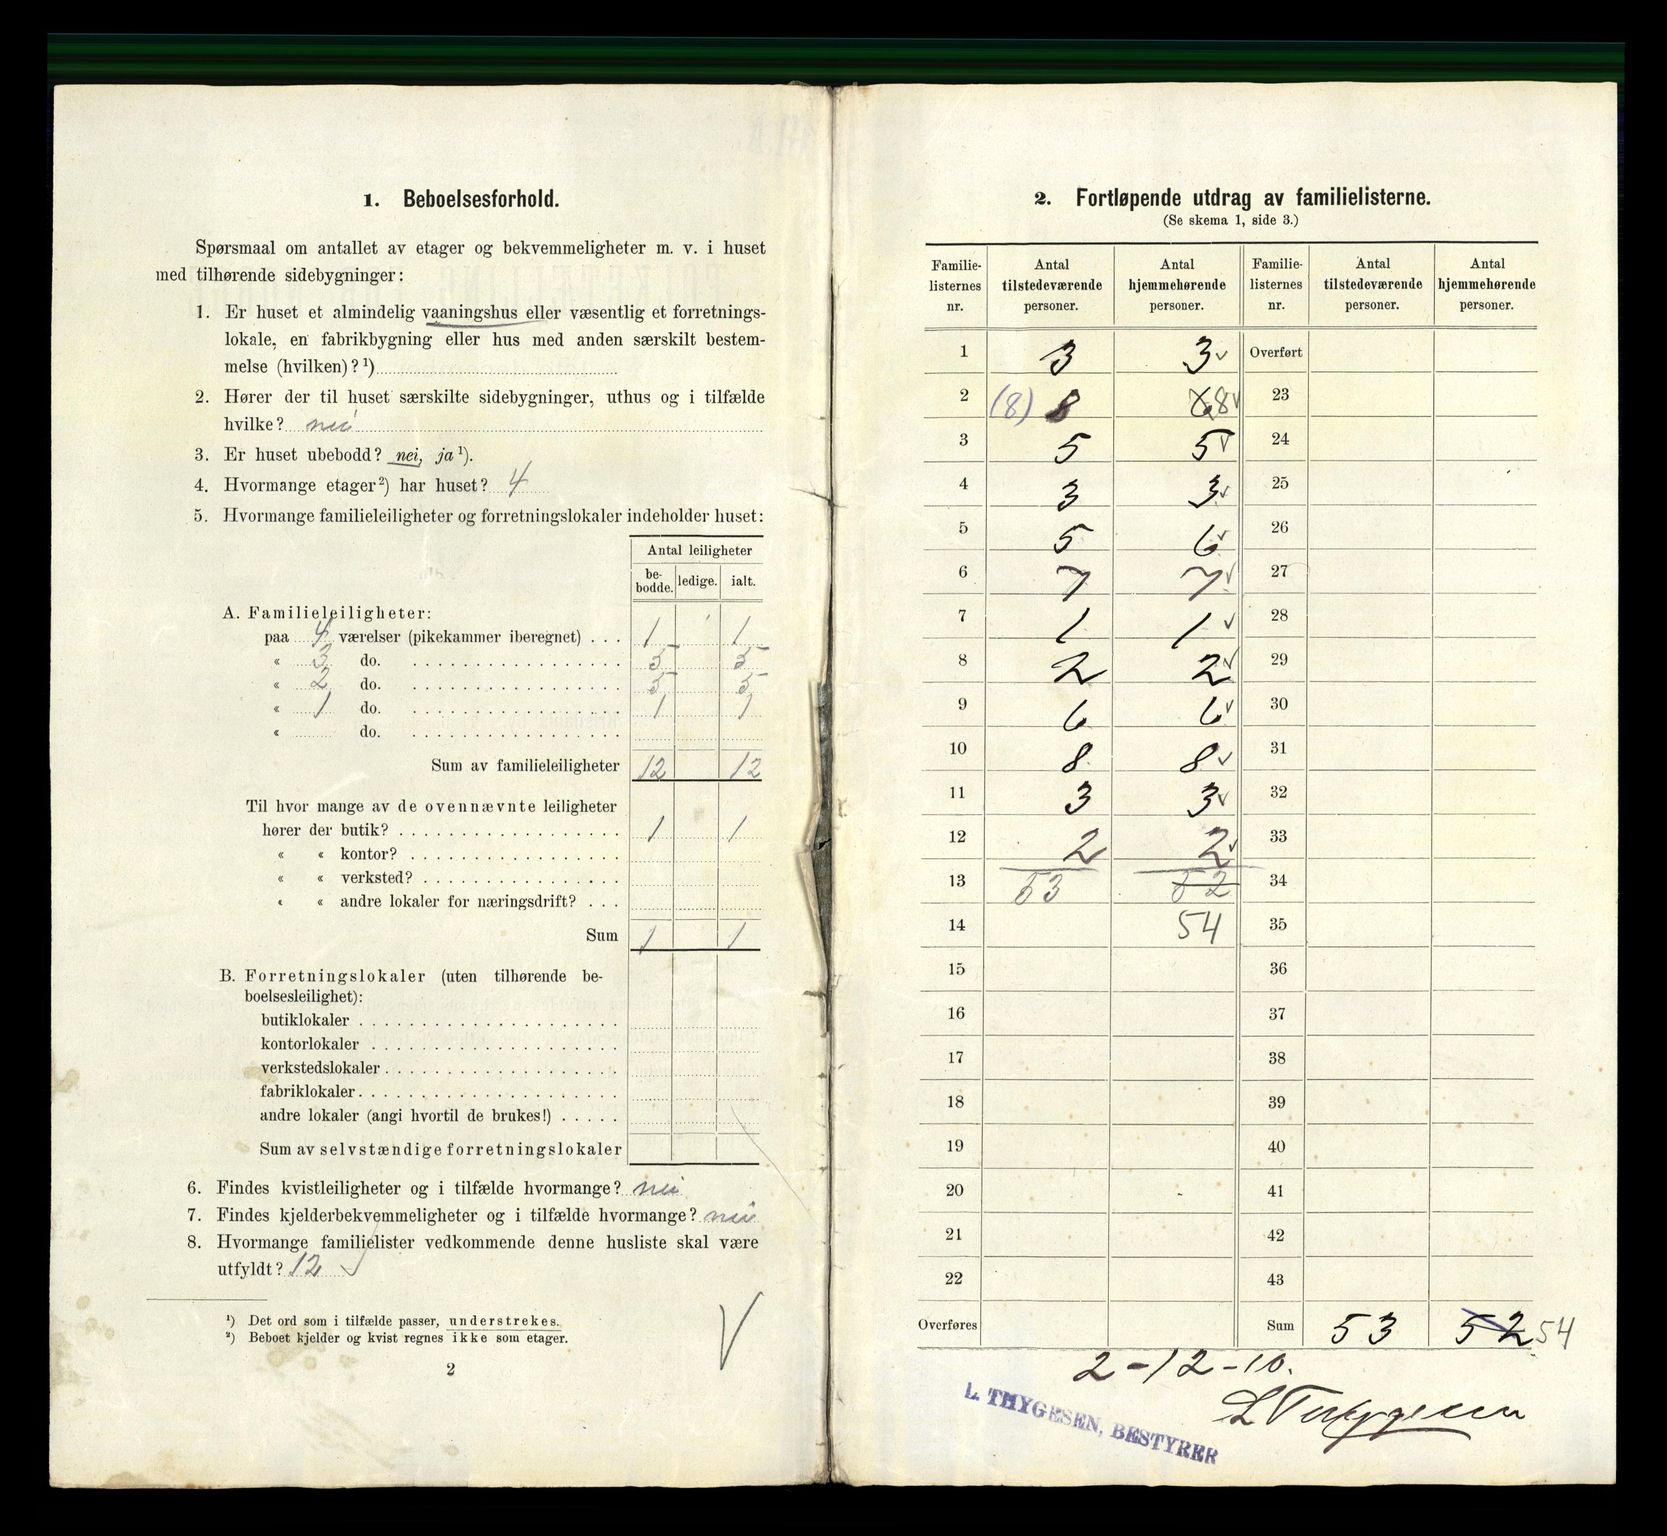 1. Beboelsesforhold.
Spørsmaal om antallet av etager og bekvemmeligheter m. v. i huset
med tilhørende sidebygninger:
1. Er huset et almindelig vaaningshus eller væsentlig et forretnings-
lokale, en fabrikbygning eller hus med anden særskilt bestem-
melse (hvilken)? ¹)
2. Hører der til huset særskilte sidebygninger, uthus og i tilfælde
hvilke? nei
3. Er huset ubebodd? nei, ja ¹).
4. Hvormange etager ²) har huset? 4
5. Hvormange familieleiligheter og forretningslokaler indeholder huset:
Antal leiligheter
be-bodde. ledige. ialt.
A. Familieleiligheter:
paa 4 værelser (pikekammer iberegnet) . . . 1 1
« 3 do. 5 5
« 2 do. 5 5
« 1 do. 1 1
« do.
Sum av familieleiligheter 12 12
Til hvor mange av de ovennævnte leiligheter
hører der butik? 1 1
« « kontor?
« « verksted?
« « andre lokaler for næringsdrift? . . .
Sum 1 1
B. Forretningslokaler (uten tilhørende be-
boelsesleilighet):
butiklokaler
kontorlokaler
verkstedslokaler
fabriklokaler
andre lokaler (angi hvortil de brukes!)
Sum av selvstændige forretningslokaler
6. Findes kvistleiligheter og i tilfælde hvormange? nei
7. Findes kjelderbekvemmeligheter og i tilfælde hvormange? nei
8. Hvormange familielister vedkommende denne husliste skal være
utfyldt? 12
¹) Det ord som i tilfælde passer, understrekes.
²) Beboet kjelder og kvist regnes ikke som etager.
2
2. Fortløpende utdrag av familielisterne.
(Se skema 1, side 3.)
Familie-listernes nr. Antal tilstedeværende personer. Antal hjemmehørende personer. Familie-listernes nr. Antal tilstedeværende personer. Antal hjemmehørende personer.
1 3 3 Overført
2 (8) 8 6 8 23
3 5 5 24
4 3 3 25
5 5 6 26
6 7 7 27
7 1 1 28
8 2 2 29
9 6 6 30
10 8 8 31
11 3 3 32
12 2 2 33
13 53 52 34
14 54 35
15 36
16 37
17 38
18 39
19 40
20 41
21 42
22 43
Overføres Sum 53 52 54
2-12-10.
L. THYGESEN, BESTYRER
L Thygesen